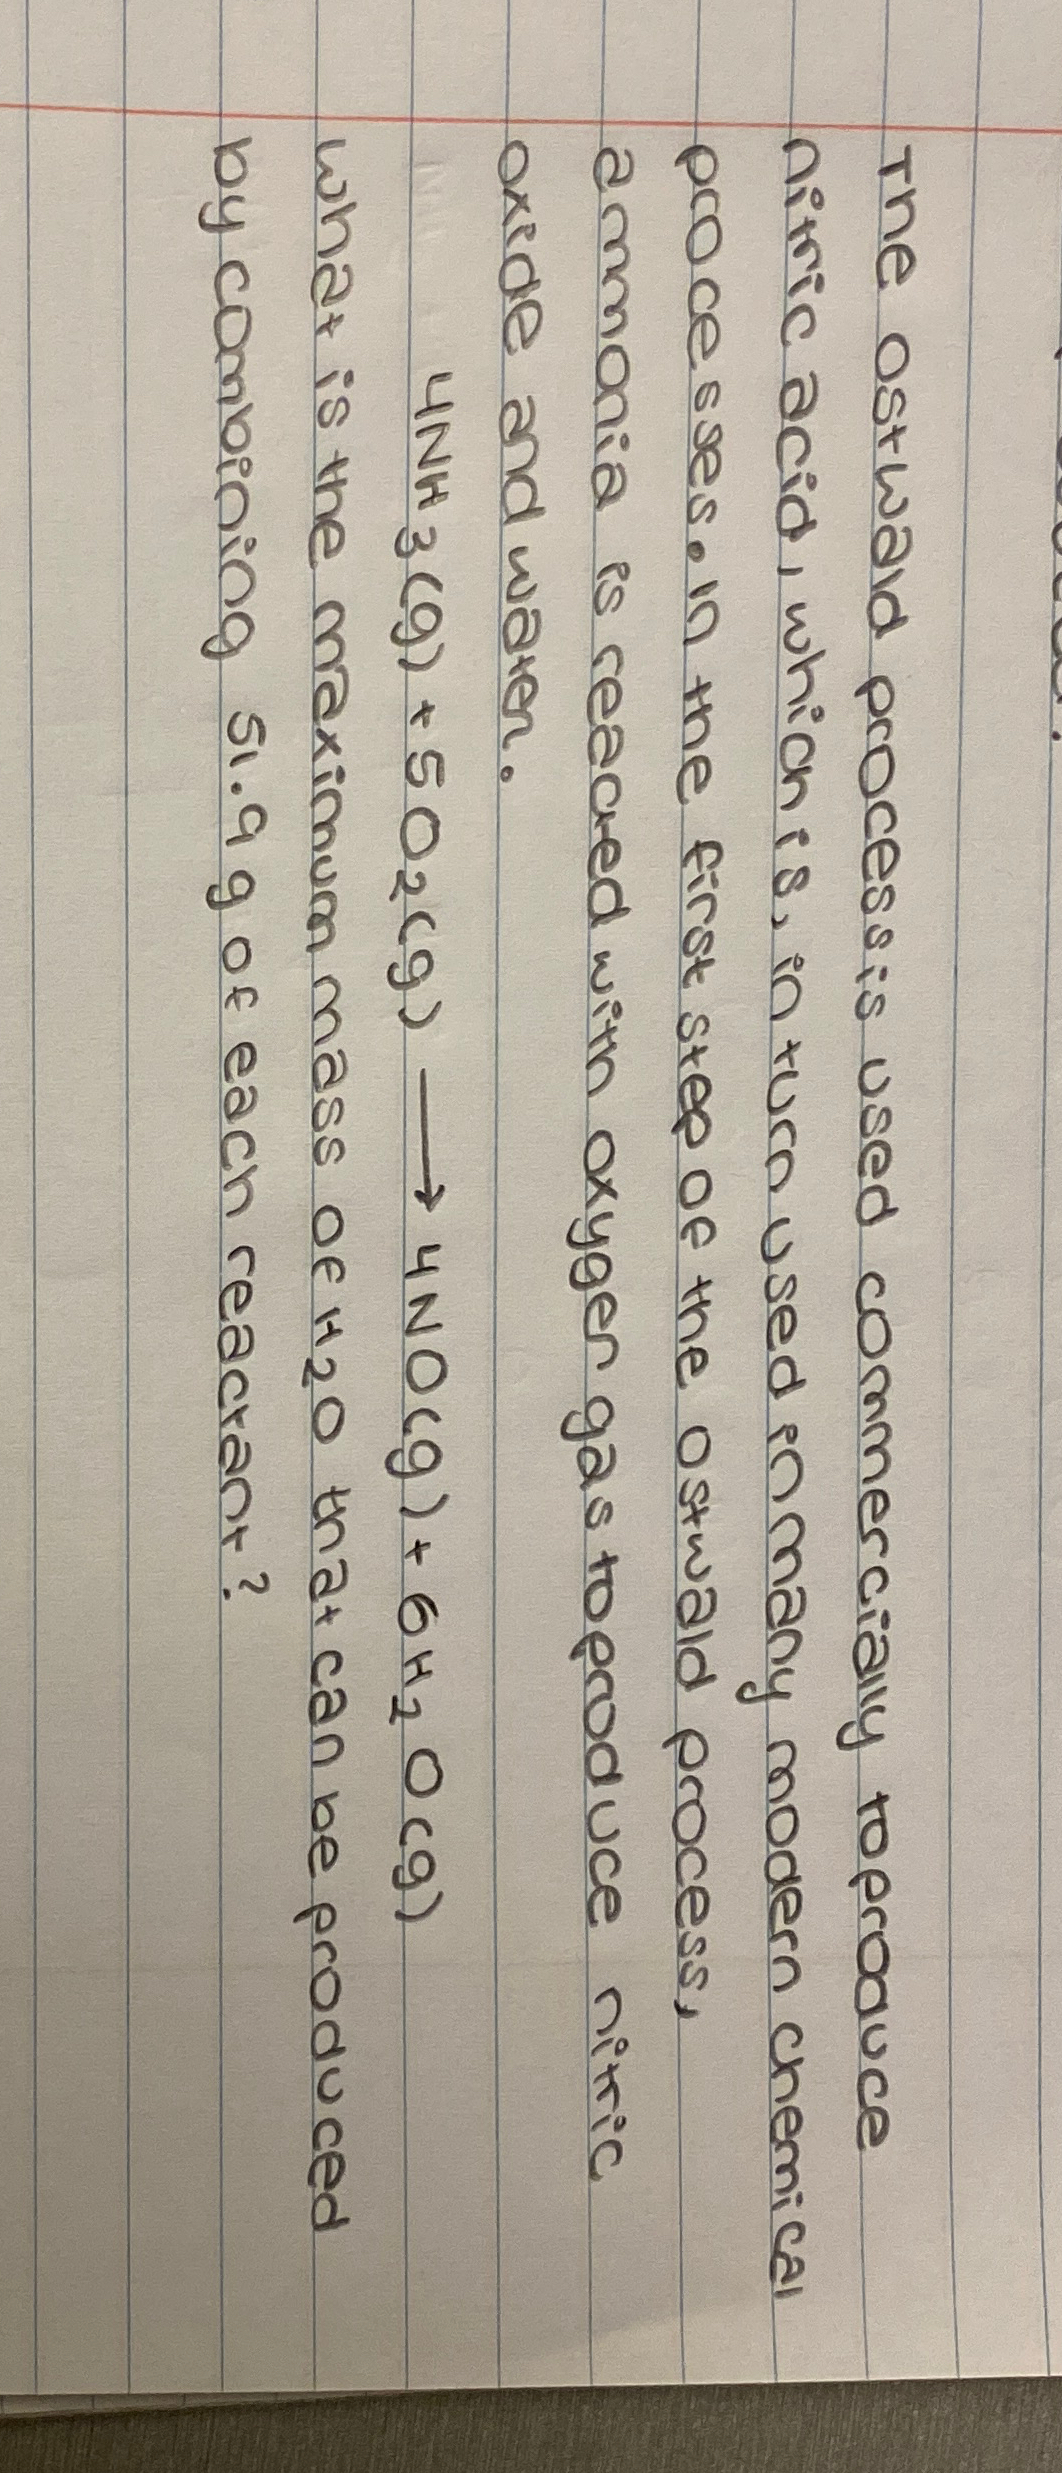 The ostwald process is used commercially to produce
nitric acid, which is, in turn used in many modern chemical
processes. in the first step of the ostwald process,
ammonia is reacted with oxygen gas to produce nitric
oxide and water.
4NH3(g) + 5O2(g) ⟶ 4NO(g) + 6H2O(g)
what is the maximum mass of H2O that can be produced
by combining 51.9 g of each reactant?